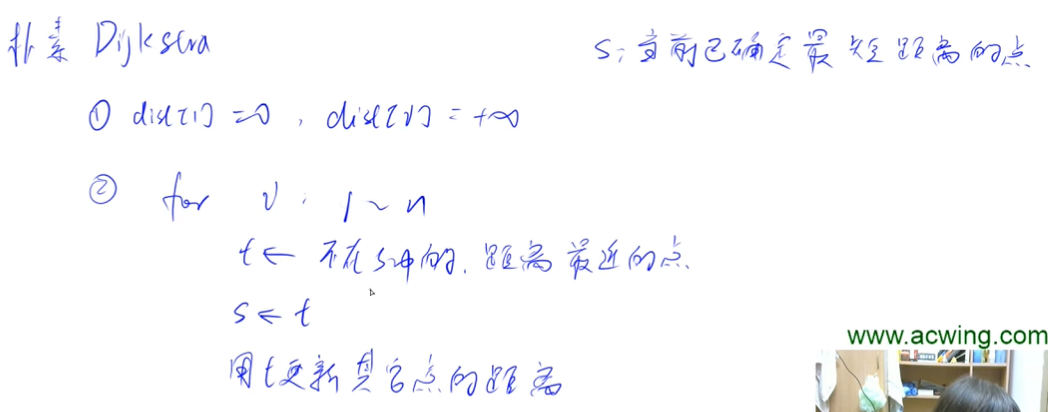 朴素 Dijkstra
S: 当前已确定最短距离的点
① dist[1] = 0, dist[i] = +∞
② for i: 1 ~ n
t ← 不在S中的, 距离最近的点
S ← t
用t更新其它点的距离
www.acwing.com